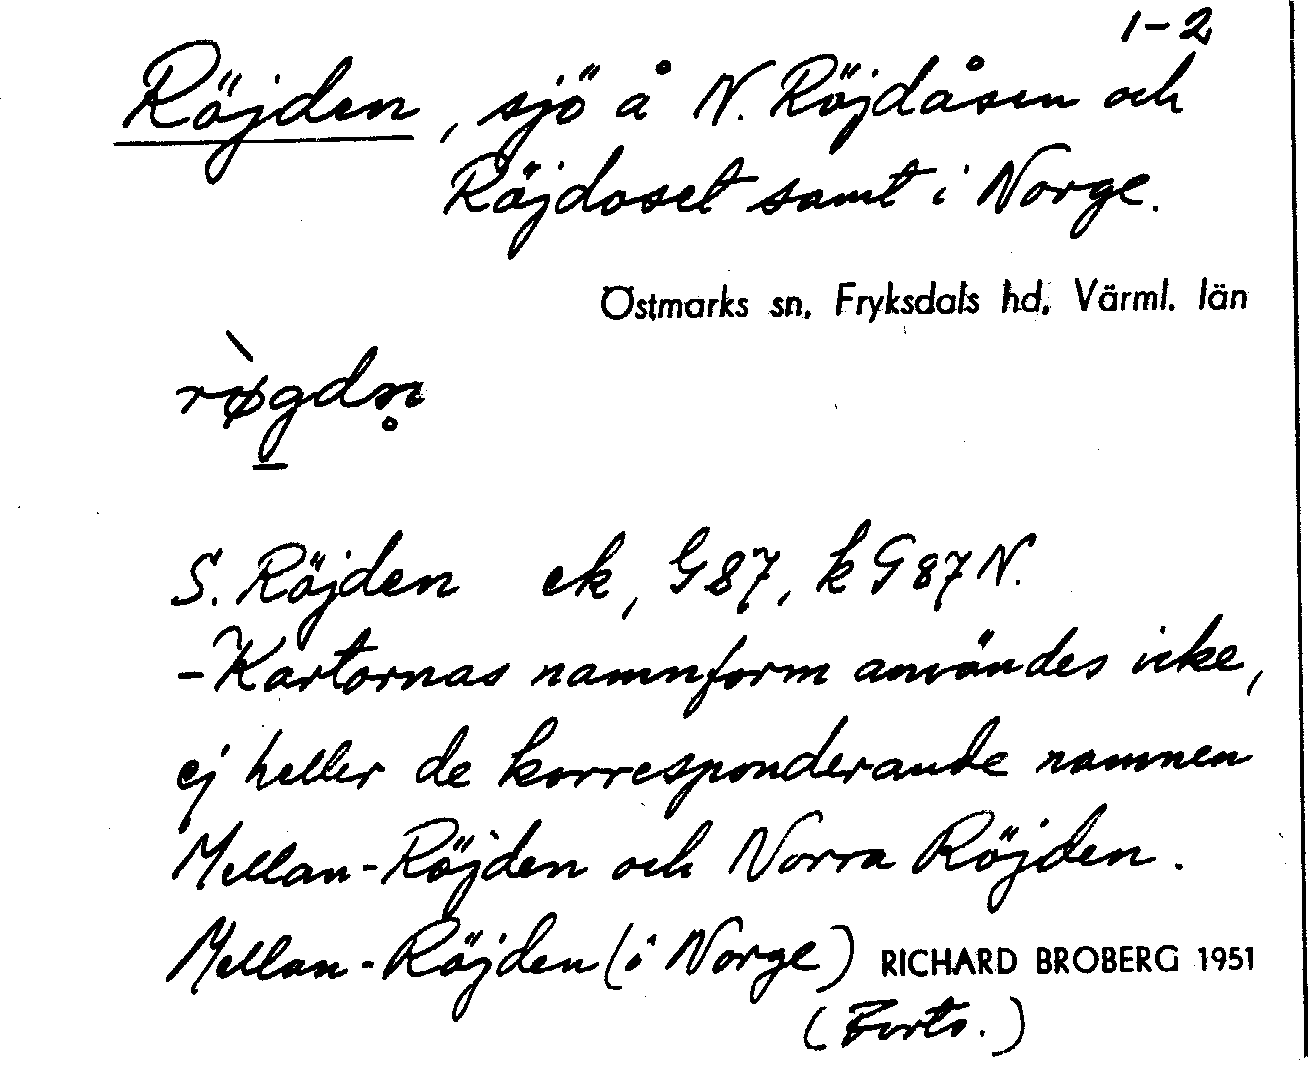 1-2
Röjden, sjö å N. Röjdåsen och
Röjdoset samt i Norge.
Östmarks sn, Fryksdals hd, Värml. län
rø̀g̱dn̥
S. Röjden ek, G87, k G87 N.
-Kartornas namnform användes icke,
ej heller de korresponderande namnen
Mellan-Röjden och Norra Röjden.
Mellan-Röjden (i Norge) RICHARD BROBERG 1951
(Forts.)